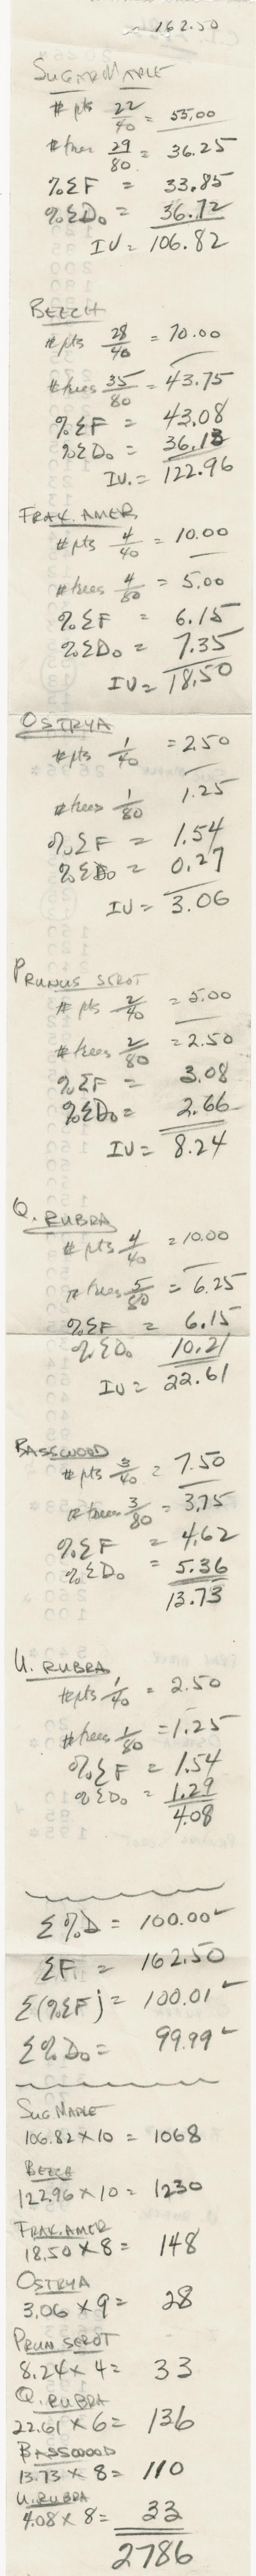 162.50
SUGAR MAPLE
# pts 22/40 = 55.00
# trees 29/80 = 36.25
%ΣF = 33.85
%ΣDo = 36.72
IV = 106.82
BEECH
# pts 28/40 = 70.00
# trees 35/80 = 43.75
%ΣF = 43.08
%ΣDo = 36.13
IV. = 122.96
FRAX. AMER
# pts 4/40 = 10.00
# trees 4/80 = 5.00
%ΣF = 6.15
%ΣDo = 7.35
IV = 18.50
OSTRYA
# pts 1/40 = 2.50
# trees 1/80 1.25
%ΣF = 1.54
%ΣDo = 0.27
IV = 3.06
PRUNUS SEROT
# pts 2/40 = 5.00
# trees 2/80 = 2.50
%ΣF = 3.08
%ΣDo = 2.66
IV = 8.24
Q. RUBRA
# pts 4/40 = 10.00
# trees 5/80 = 6.25
%ΣF = 6.15
%ΣDo 10.21
IV = 22.61
BASSWOOD
# pts 3/40 = 7.50
# trees 3/80 = 3.75
%ΣF = 4.62
%ΣDo = 5.36
13.73
U. RUBRA
# pts 1/40 = 2.50
# trees 1/80 = 1.25
%ΣF = 1.54
%ΣDo = 1.29
4.08
Σ%D = 100.00 ✓
ΣF = 162.50
Σ(%ΣF) = 100.01 ✓
Σ%Do = 99.99 ✓
SUG MAPLE
106.82 × 10 = 1068
BEECH
122.96 × 10 = 1230
FRAX. AMER
18.50 × 8 = 148
OSTRYA
3.06 × 9 = 28
PRUN SEROT
8.24 × 4 = 33
Q. RUBRA
22.61 × 6 = 136
BASSWOOD
13.73 × 8 = 110
U. RUBRA
4.08 × 8 = 33
2786